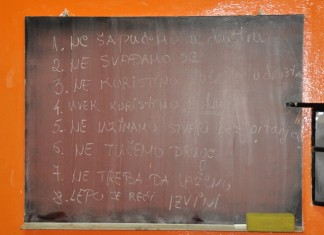 1. NE
2. NE SVAĐAMO SE
3. NE KORISTIMO
4. UVEK KORISTIMO
5. NE UZIMAMO STVARI BEZ PITANJA
6. NE TUČEMO DRUGE
7. NE TREBA DA LAŽEMO
8. LEPO JE REĆI IZVINI